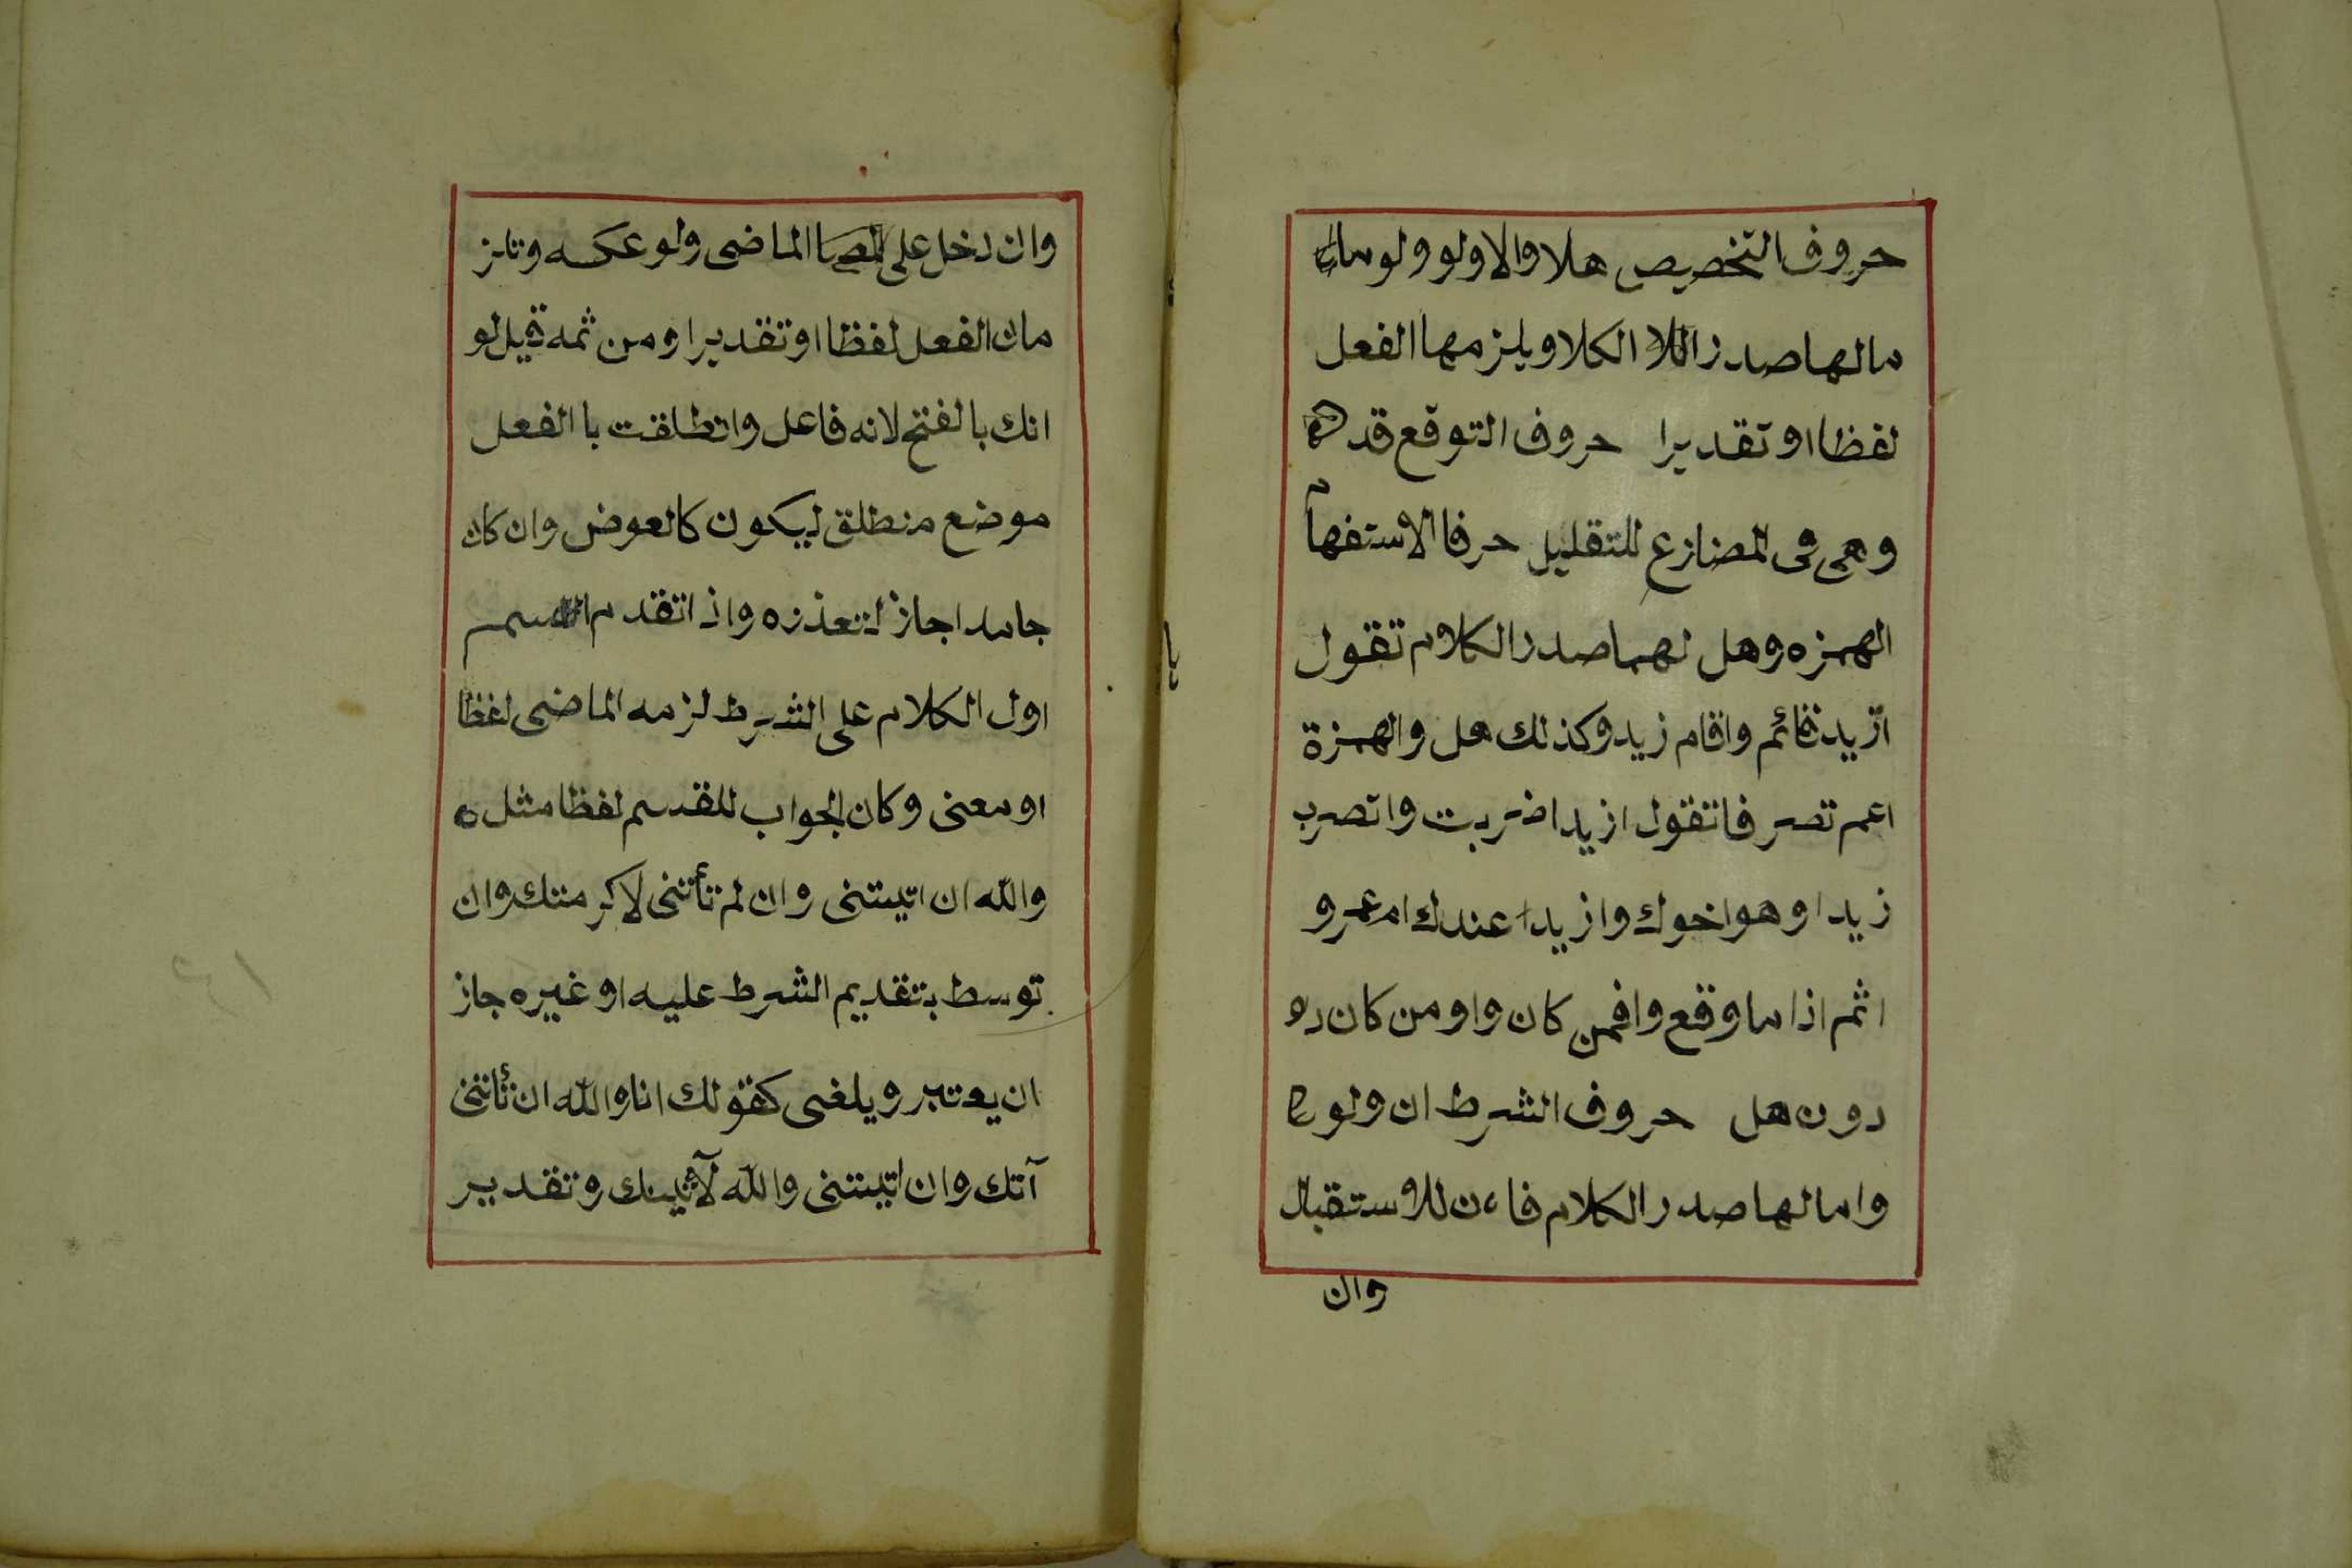 حروف التخصيص هلا والا ولو ولو ما
مالها صدر الكلا ويلزمها الفعل
لفظا او تقديرا حروف التوقع قد
وهى فى المضارع للتقليل حرفا الاستفهام
الهمزه وهل لهما صدر الكلام تقول
ازيد قائم واقام زيد وكذلك هل والهمزة
اعم تصر فاتقول ازيدا ضربت واتصرب
زيدا وهو اخوك وازيدا عندك ام عمرو
اثم اذا ما وقع وافمن كان واو من كان دو
دون هل حروف الشرط ان ولو
واما لها صدر الكلام فاءن للاستقبال
وان
وان دخل على الماضى ولو عكسه وتلز
مان الفعل لفظا او تقديرا ومن ثمه قيل لو
انك بالفتح لانه فاعل وانطلقت باالفعل
موضع منطلق ليكون كالعوض وان كان
جامدا جاز لتعذره واذا تقدم القسم
اول الكلام على الشرط لزمه الماضى لفظا
او معنى وكان الجواب للقدسم لفظا مثل
والله ان اتيتنى وان لم تأتنى لاكرمتك وان
توسط بتقديم الشرط عليه او غيره جاز
ان يعتبر ويلغى كقولك انا والله ان تأتنى
آتك وان اتيتنى والله لآتينك وتقدير